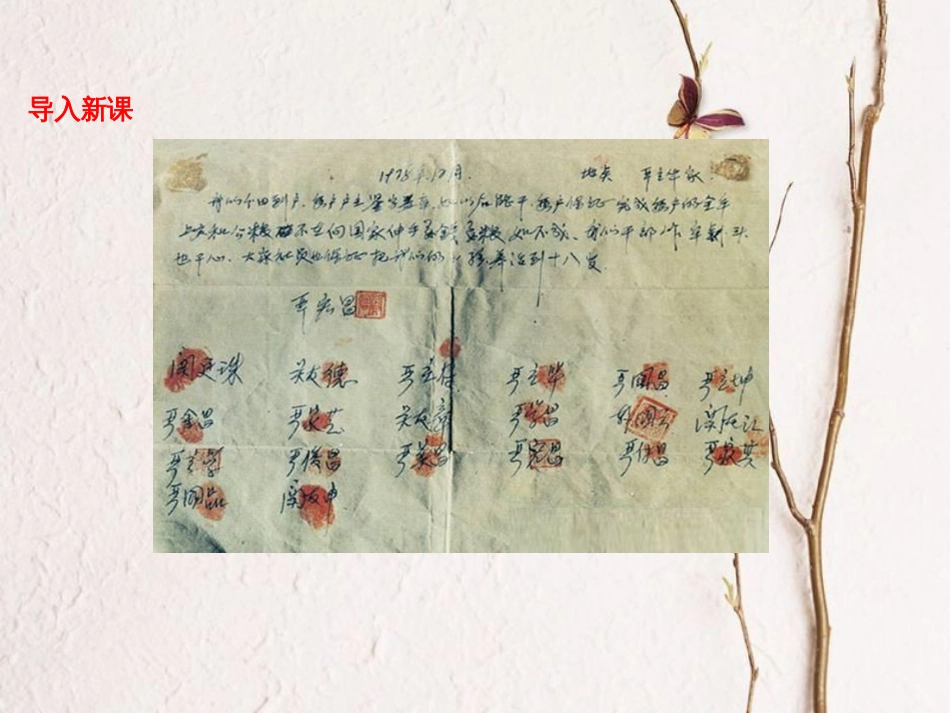 导入新课
1978年12月. 地点 严立华家
我们分田到户,每户户主签字盖章,如以后能干,每户保证完成每户的全年
上交和公粮,不在向国家伸手要钱要粮,如不成,我们干部作牢刹头
也干心,大家社员也保证把我们的小孩养活到十八岁.
严宏昌
关廷珠 关友德 严立符 严立华 严国昌 严立坤
严金昌 严家芝 关友章 严学昌 韩国云 关友江
严立学 严俊昌 严美昌 严宏昌 严付昌 严家其
严国品 关友申